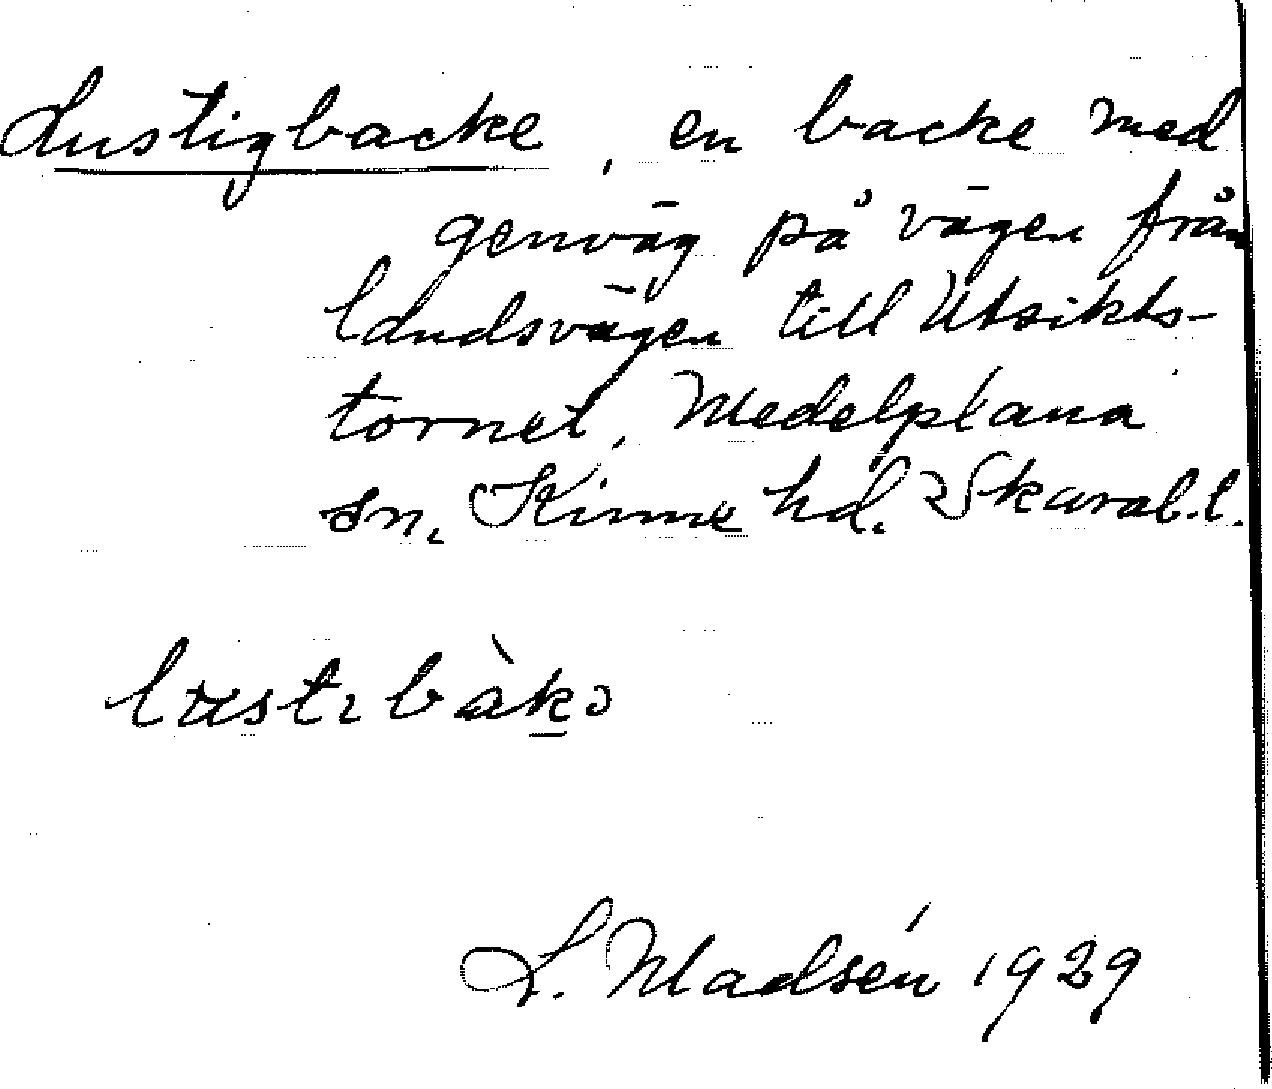 Lustigbacke, en backe med
genväg på vägen från
landsvägen till Utsikts-
tornet, Medelplana
sn. Kinne hd. Skarab.l.
L. Madsén 1929